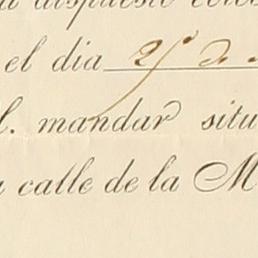 dispuesto
el dia 25 de
l. mandar situ
calle de la M